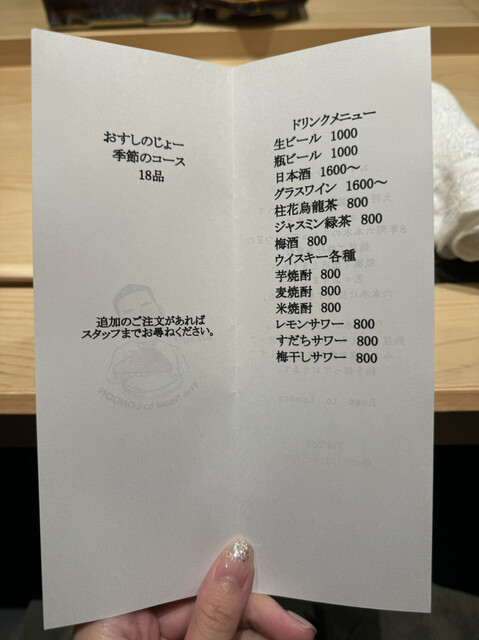 おすしのじょー
季節のコース
18品
追加のご注文があれば
スタッフまでお尋ねください。
ドリンクメニュー
生ビール 1000
瓶ビール 1000
日本酒 1600～
グラスワイン 1600～
桂花烏龍茶 800
ジャスミン緑茶 800
梅酒 800
ウイスキー各種
芋焼酎 800
麦焼酎 800
米焼酎 800
レモンサワー 800
すだちサワー 800
梅干しサワー 800
The Road to LONDON
Road to London